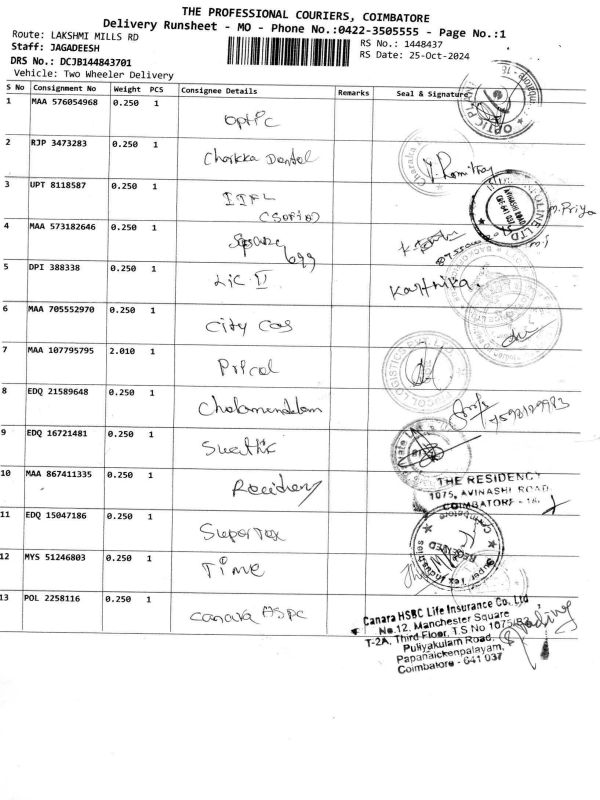 THE PROFESSIONAL COURIERS, COIMBATORE
Delivery Runsheet - MO - Phone No.:0422-3505555 - Page No.:1
Route: LAKSHMI MILLS RD
RS No.: 1448437
Staff: JAGADEESH
RS Date: 25-Oct-2024
DRS No.: DCJB144843701
Vehicle: Two Wheeler Delivery
S No Consignment No Weight PCS Consignee Details Remarks Seal & Signature
1 MAA 576054968 0.250 1
optic
2 RJP 3473283 0.250 1
Dental
3 UPT 8118587 0.250 1
IIFL
M. Priya
4 MAA 573182646 0.250 1
Square
699
5 DPI 388338 0.250 1
LIC II
Karthika.
6 MAA 705552970 0.250 1
City
7 MAA 107795795 2.010 1
Pricol
8 EDQ 21589648 0.250 1
9 EDQ 16721481 0.250 1
10 MAA 867411335 0.250 1
THE RESIDENCY
1075, AVINASHI ROAD,
COIMBATORE - 18.
11 EDQ 15047186 0.250 1
Supertex
Coimbatore
RECEIVED
Super Tex Industries
12 MYS 51246803 0.250 1
Time
13 POL 2258116 0.250 1
Canara HSBC
Canara HSBC Life Insurance Co. Ltd
No.12, Manchester Square
T-2A, Third Floor, T.S No 1075/B2
Puliyakulam Road,
Papanaickenpalayam,
Coimbatore - 641 037